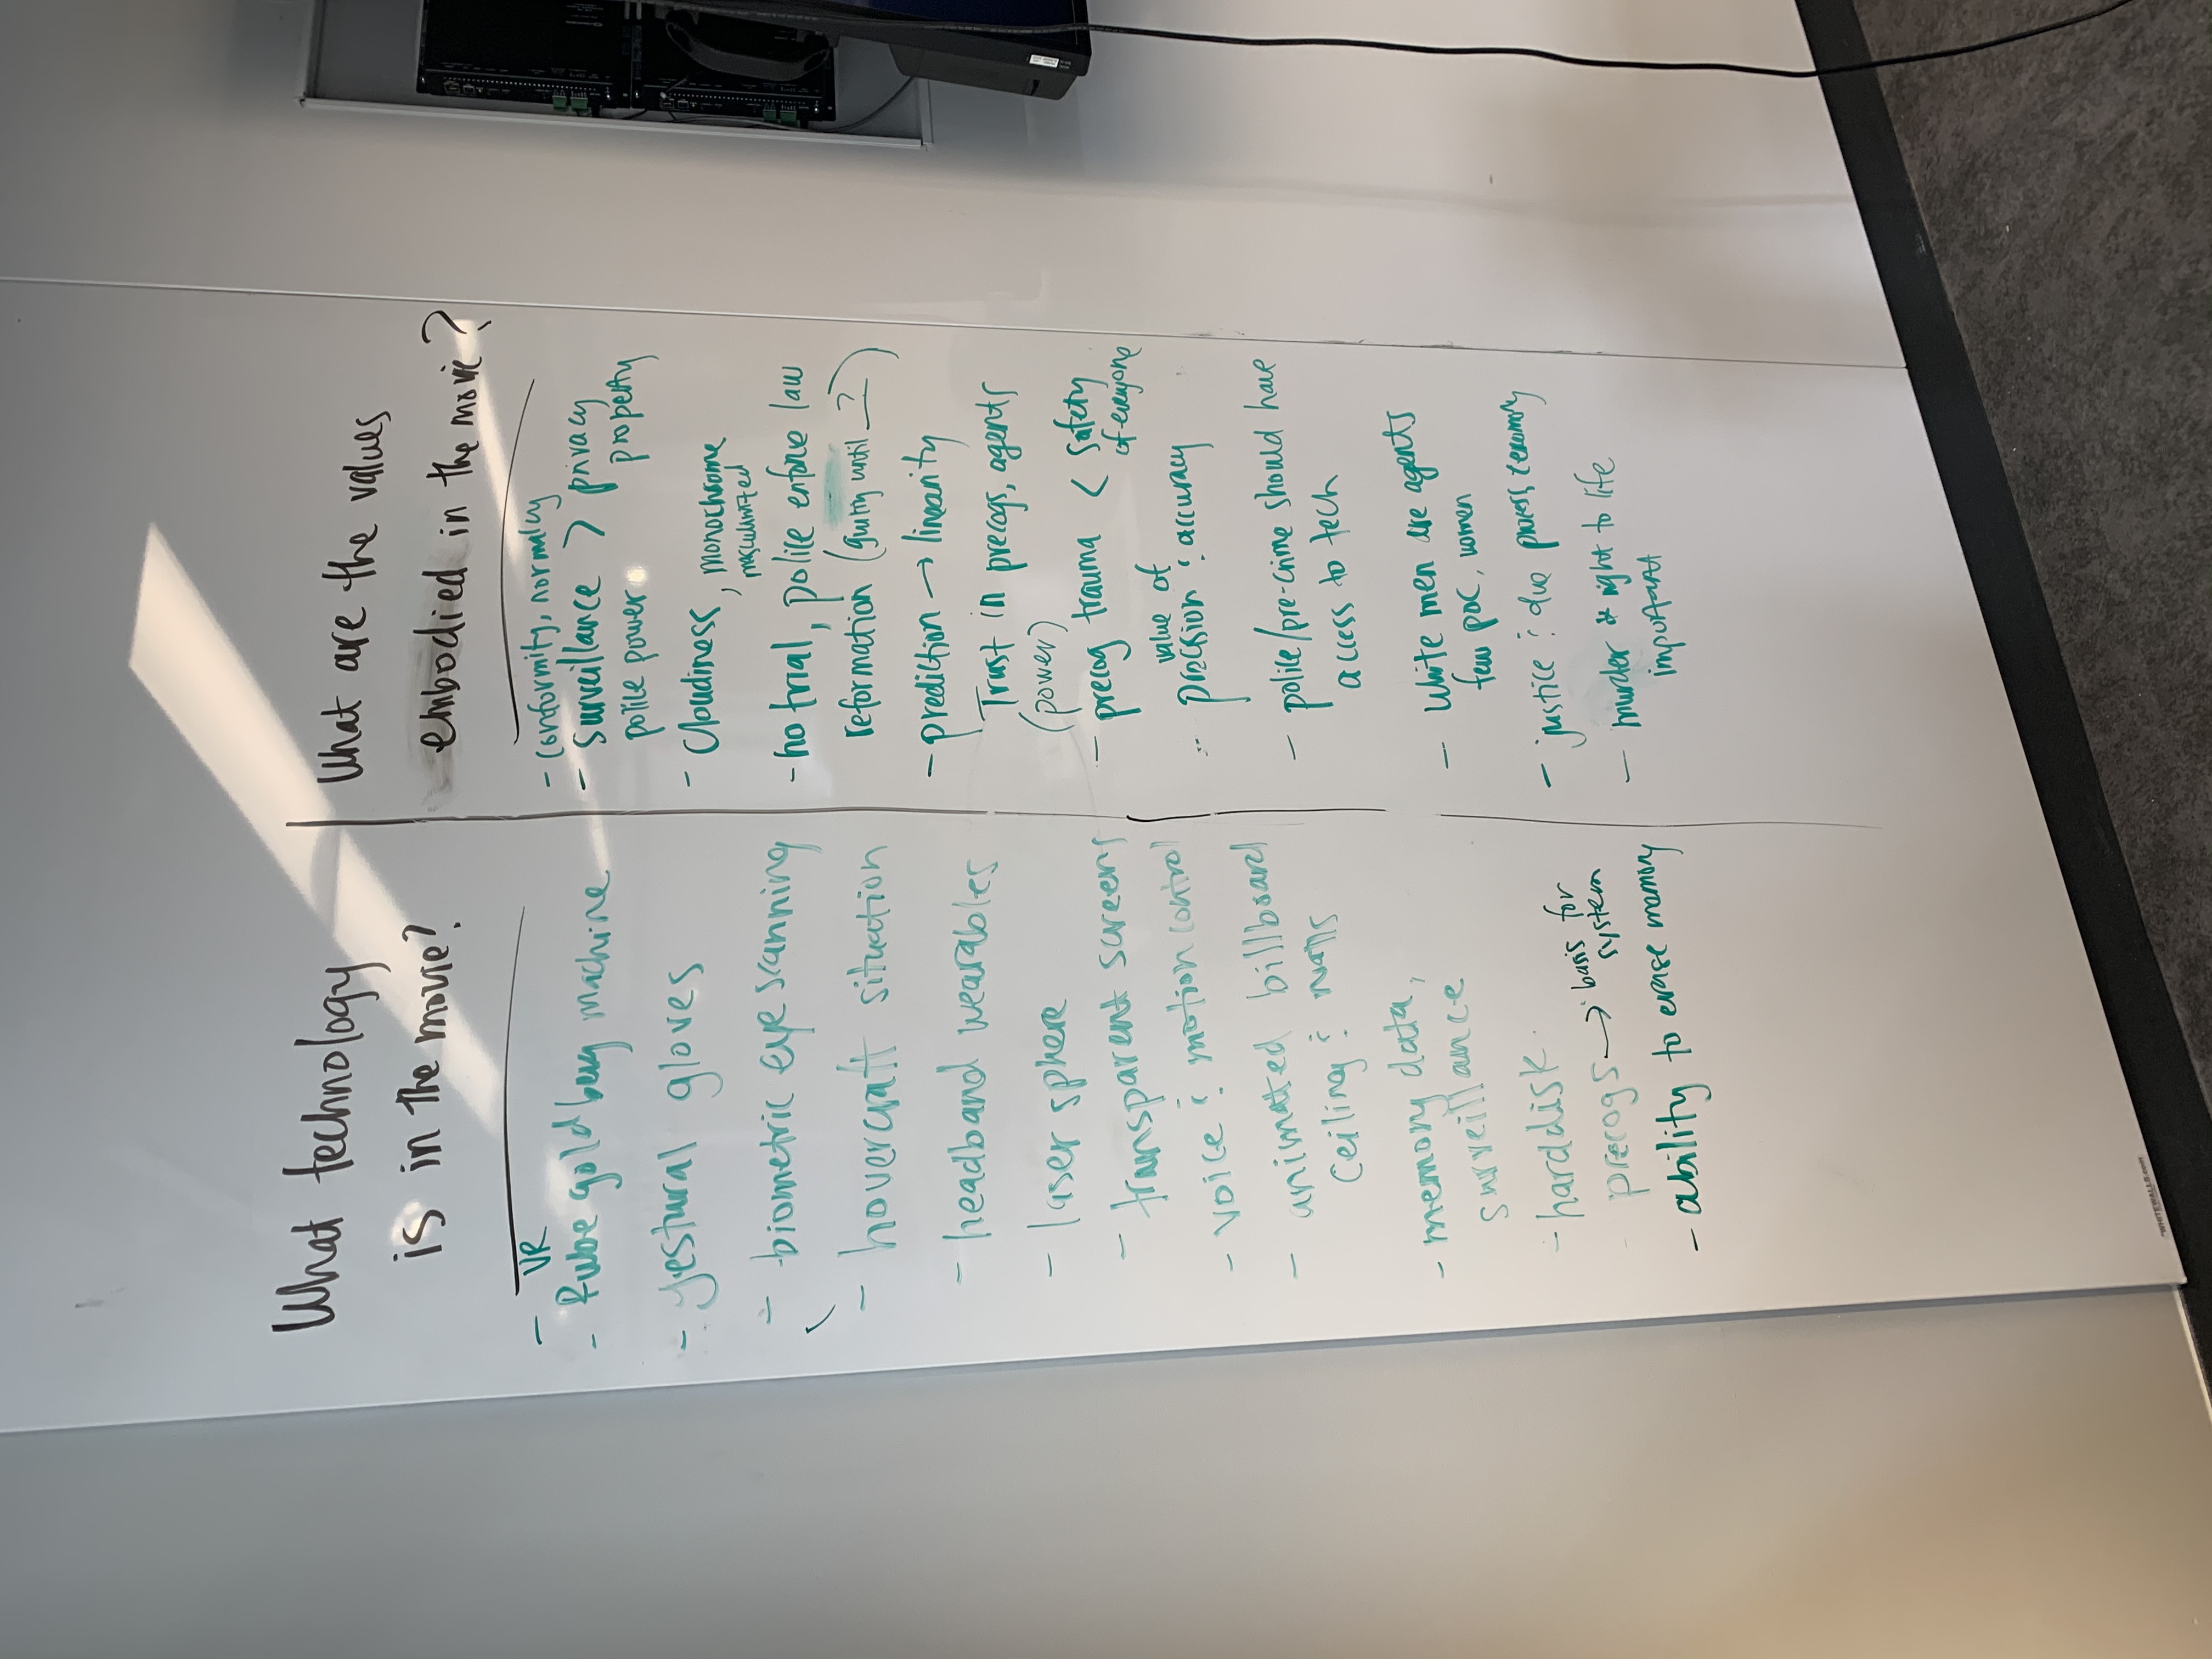 What technology
is in the movie?
- VR
- Rube goldberg machine
- gestural gloves
- biometric eye scanning
- hovercraft situation
- headband wearables
- laser sphere
- transparent screens
- voice & motion control
- animated billboard
ceiling & walls
- memory data,
surveillance
- harddisk
- precogs → basis for
system
- ability to erase memory
What are the values
embodied in the movie?
- conformity, normalcy
- surveillance > privacy
police power property
- Cloudiness, monochrome
- no trial, police enforce law
reformation (guilty until ?)
- prediction → linearity
Trust in precogs, agents
(power)
- precog trauma < safety
of everyone
value of
- precision & accuracy
- police/pre-crime should have
access to tech
- White men are agents
few POC, women
- justice & due process, ceremony
- murder & right to life
important
WHITEWALLS.com